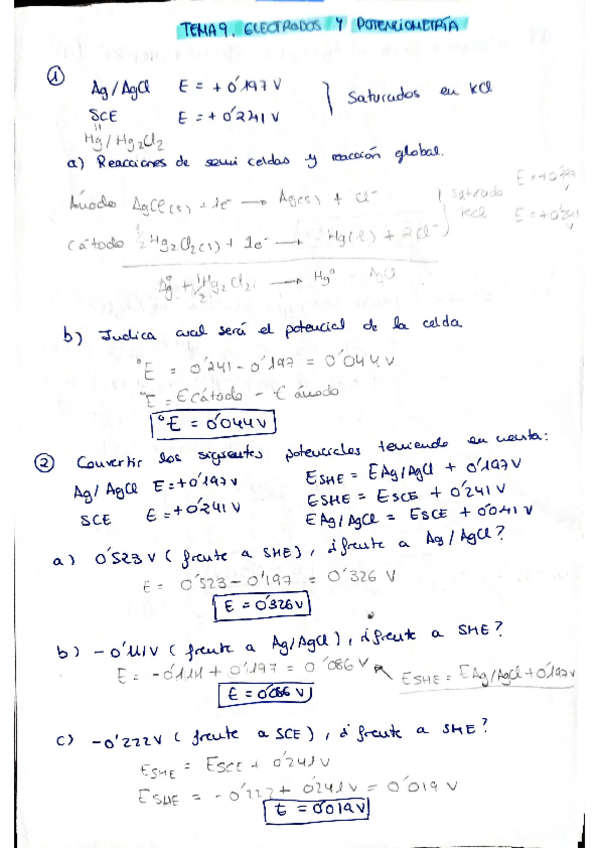 TEMA 9. ELECTRODOS Y POTENCIOMETRÍA
① Ag/AgCl E = +0'197 V
SCE E = +0'241 V } Saturados en KCl
"
Hg/Hg2Cl2
a) Reacciones de semi celdas y reacción global.
Ánodo AgCl(s) + 1e- → Ag(s) + Cl-
Cátodo 1/2 Hg2Cl2(s) + 1e- → Hg(l) + 2Cl-
saturado KCl
Ag° + 1/2 Hg2Cl2 → Hg° AgCl
b) Indica cual será el potencial de la celda
°E = 0'241 - 0'197 = 0'044 V
°E = E cátodo - E ánodo
°E = 0'044 V
② Convertir los siguientes potenciales teniendo en cuenta:
Ag/AgCl E = +0'197 V ESHE = EAg/AgCl + 0'197 V
SCE E = +0'241 V ESHE = ESCE + 0'241 V
EAg/AgCl = ESCE + 0'041 V
a) 0'523 V (frente a SHE), ¿frente a Ag/AgCl?
E = 0'523 - 0'197 = 0'326 V
E = 0'326 V
b) -0'111 V (frente a Ag/AgCl), ¿frente a SHE?
E = -0'111 + 0'197 = 0'086 V ESHE = EAg/AgCl + 0'197 V
E = 0'086 V
c) -0'222 V (frente a SCE), ¿frente a SHE?
ESHE = ESCE + 0'241 V
ESHE = -0'222 + 0'241 V = 0'019 V
E = 0'019 V